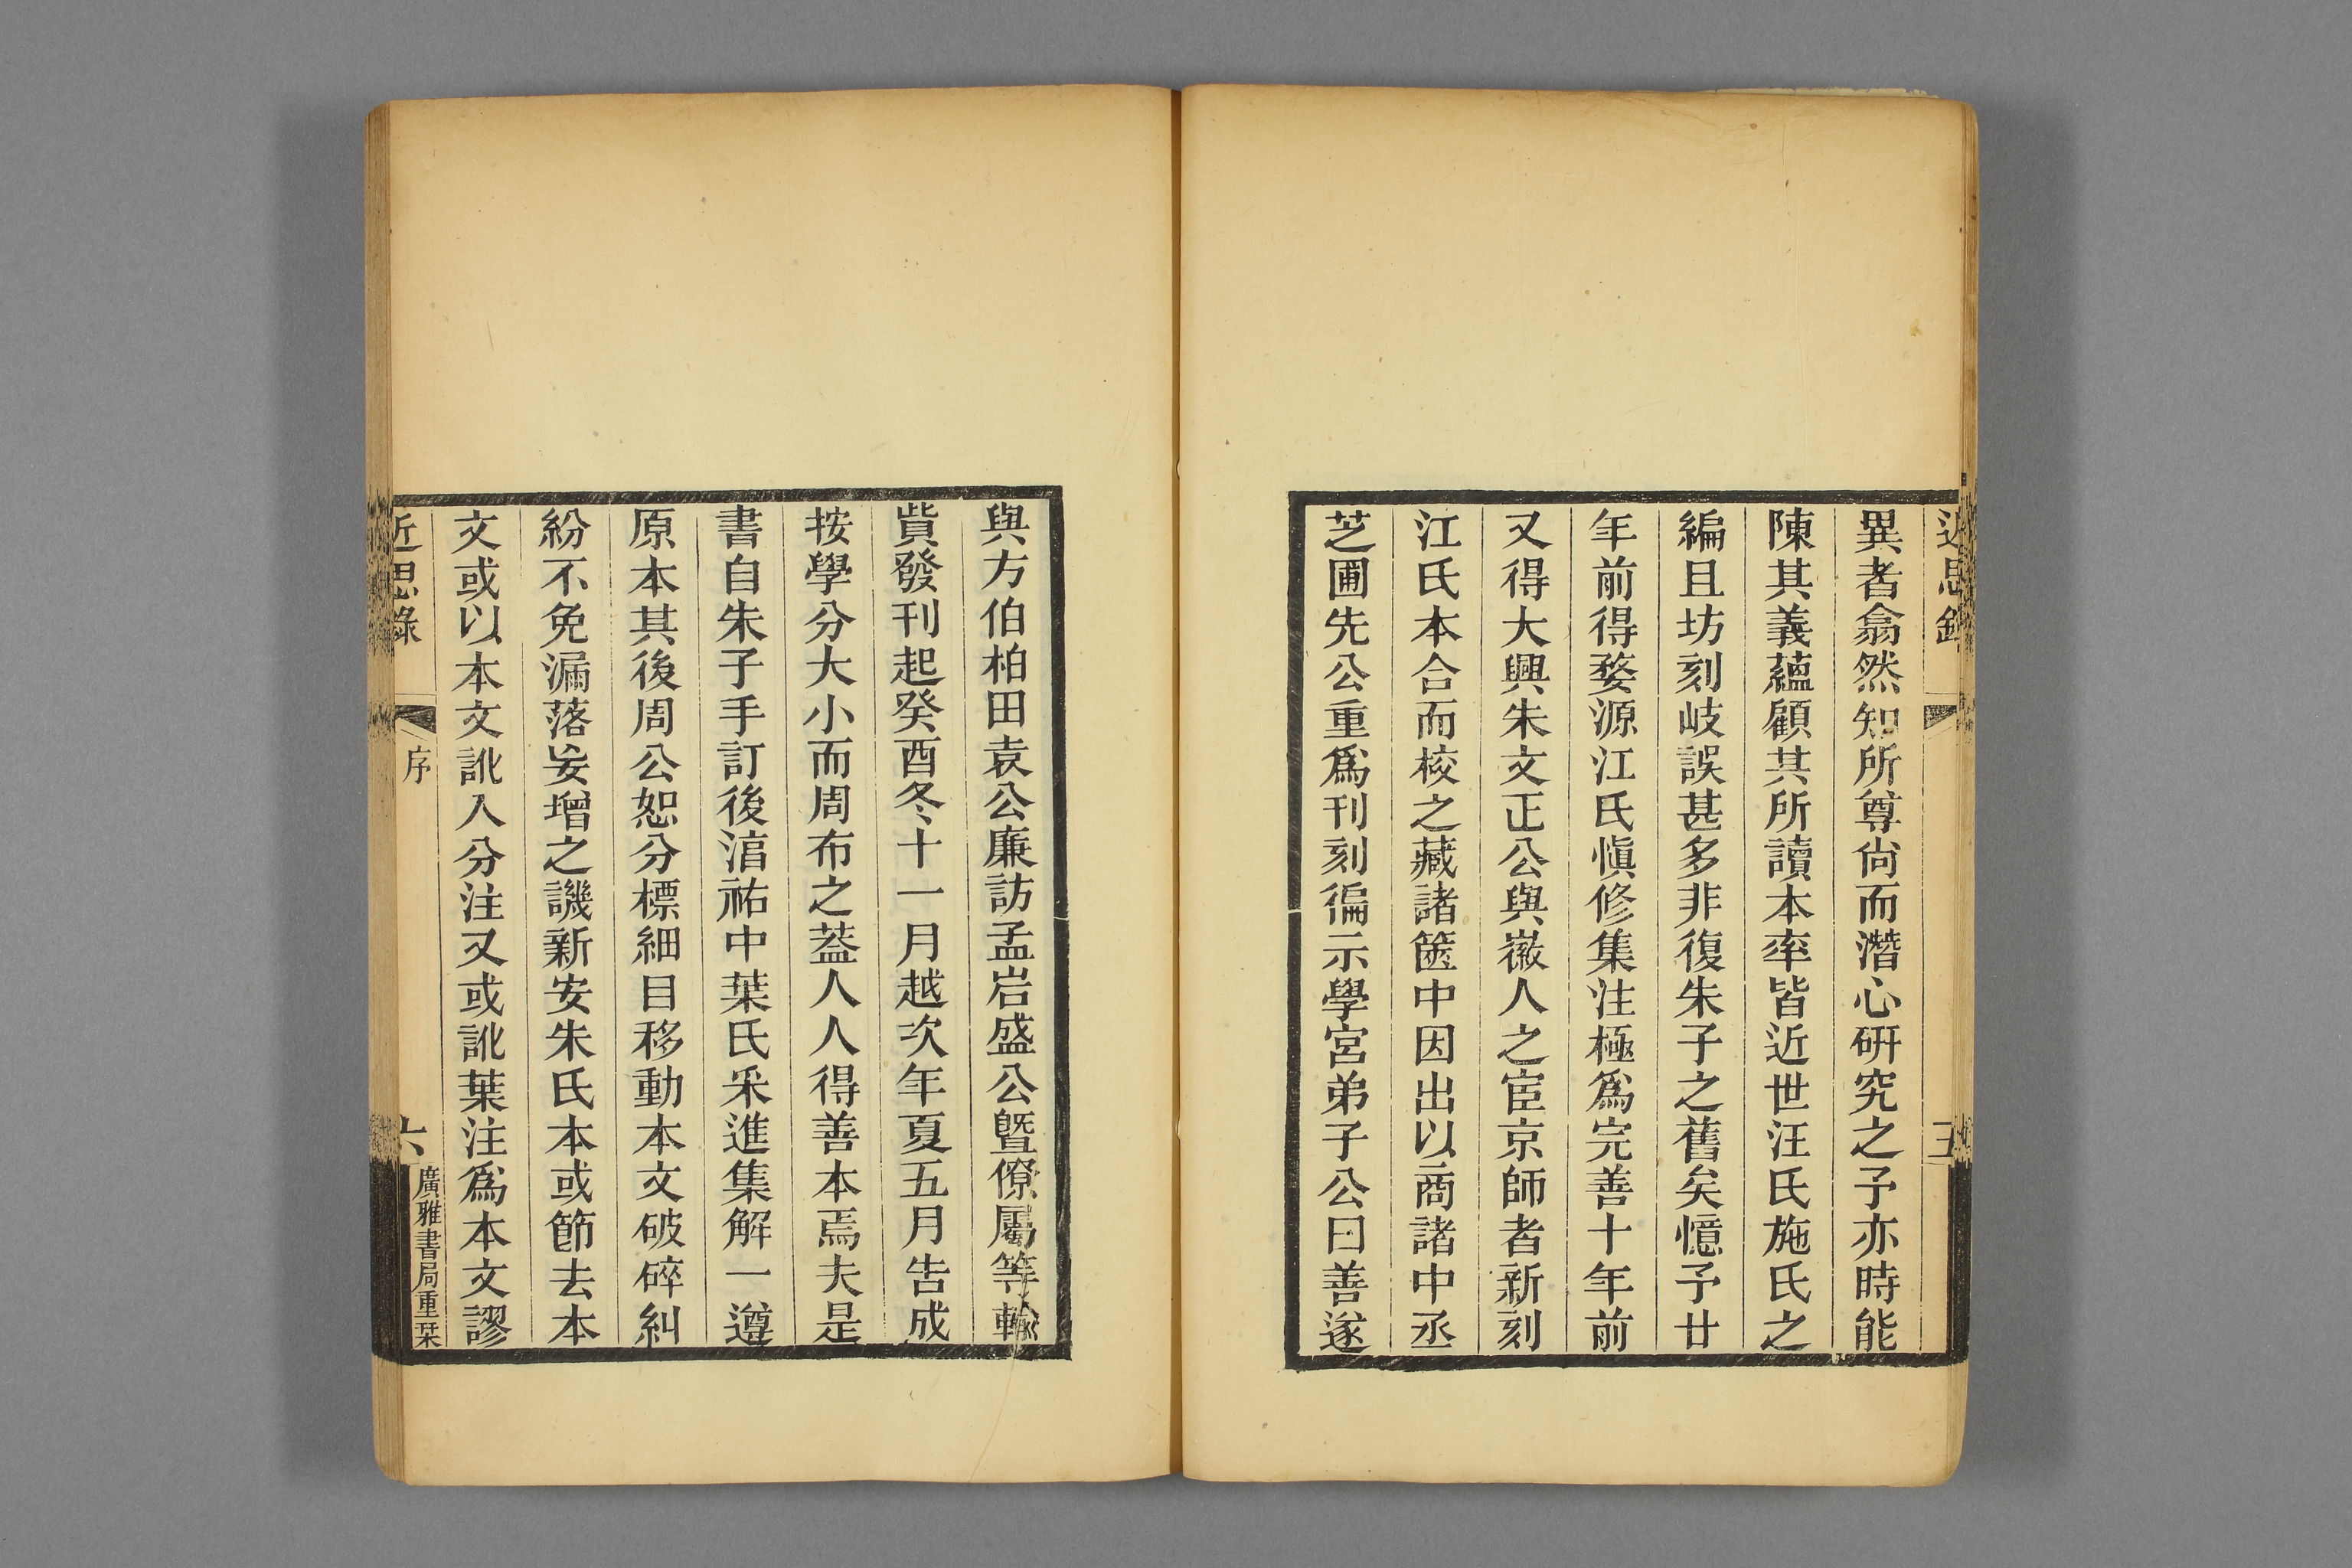 近思錄
五
異者翕然知所尊尙而潛心硏究之予亦時能
陳其義蘊顧其所讀本率皆近世汪氏施氏之
編且坊刻岐誤甚多非復朱子之舊矣憶予廿
年前得婺源江氏愼修集注極爲完善十年前
又得大興朱文正公與徽人之宦京師者新刻
江氏本合而校之藏諸篋中因出以商諸中丞
芝圃先公重爲刊刻徧示學宮弟子公曰善遂
與方伯柏田袁公廉訪孟岩盛公曁僚屬等輸
貲發刊起癸酉冬十一月越次年夏五月告成
按學分大小而周布之蓋人人得善本焉夫是
書自朱子手訂後淯祐中葉氏采進集解一遵
原本其後周公恕分標細目移動本文破碎糾
紛不免漏落妄增之譏新安朱氏本或節去本
文或以本文訛入分注又或訛葉注爲本文謬
近思錄
序
六
廣雅書局重栞